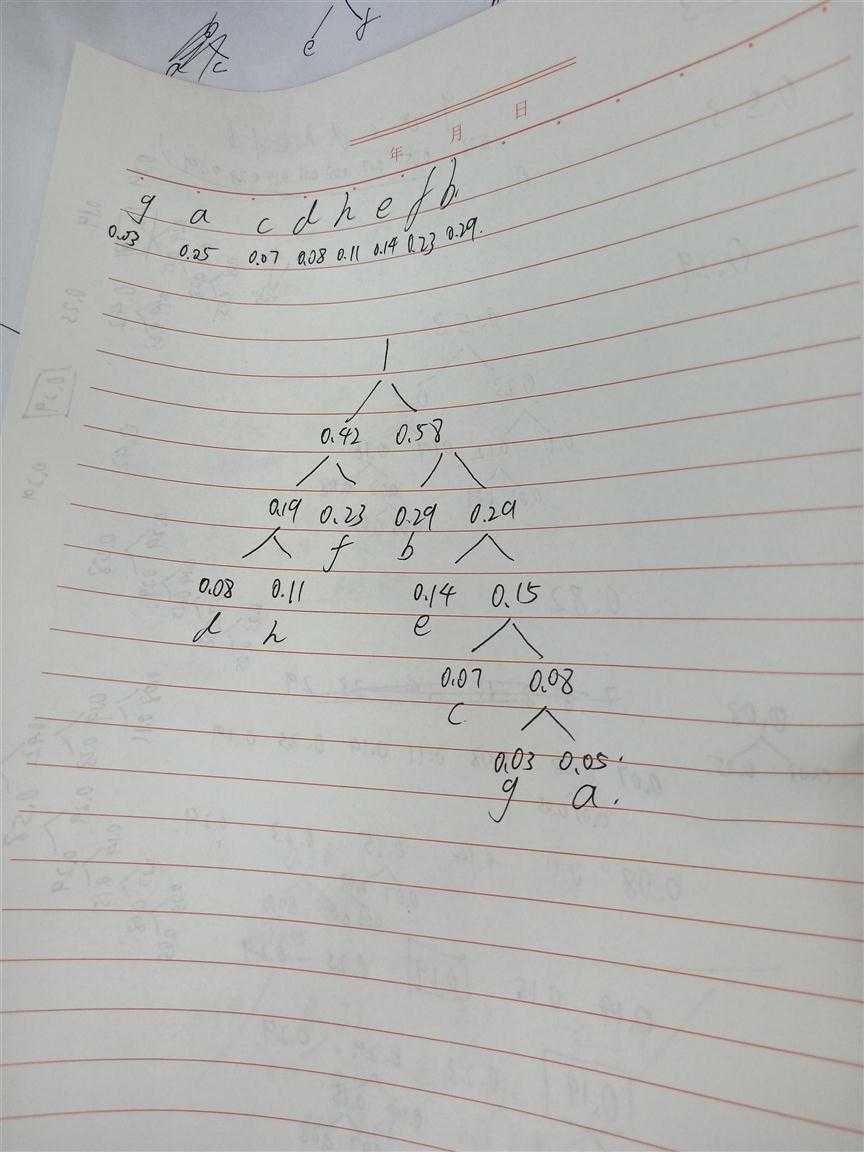 e f
a c
年 月 日
g a c d h e f b.
0.03 0.25 0.07 0.08 0.11 0.14 0.23 0.29.
1
0.42 0.58
0.19 0.23 0.29 0.29
f b
0.08 0.11 0.14 0.15
d h e
0.07 0.08
c
0.03 0.05.
g a.